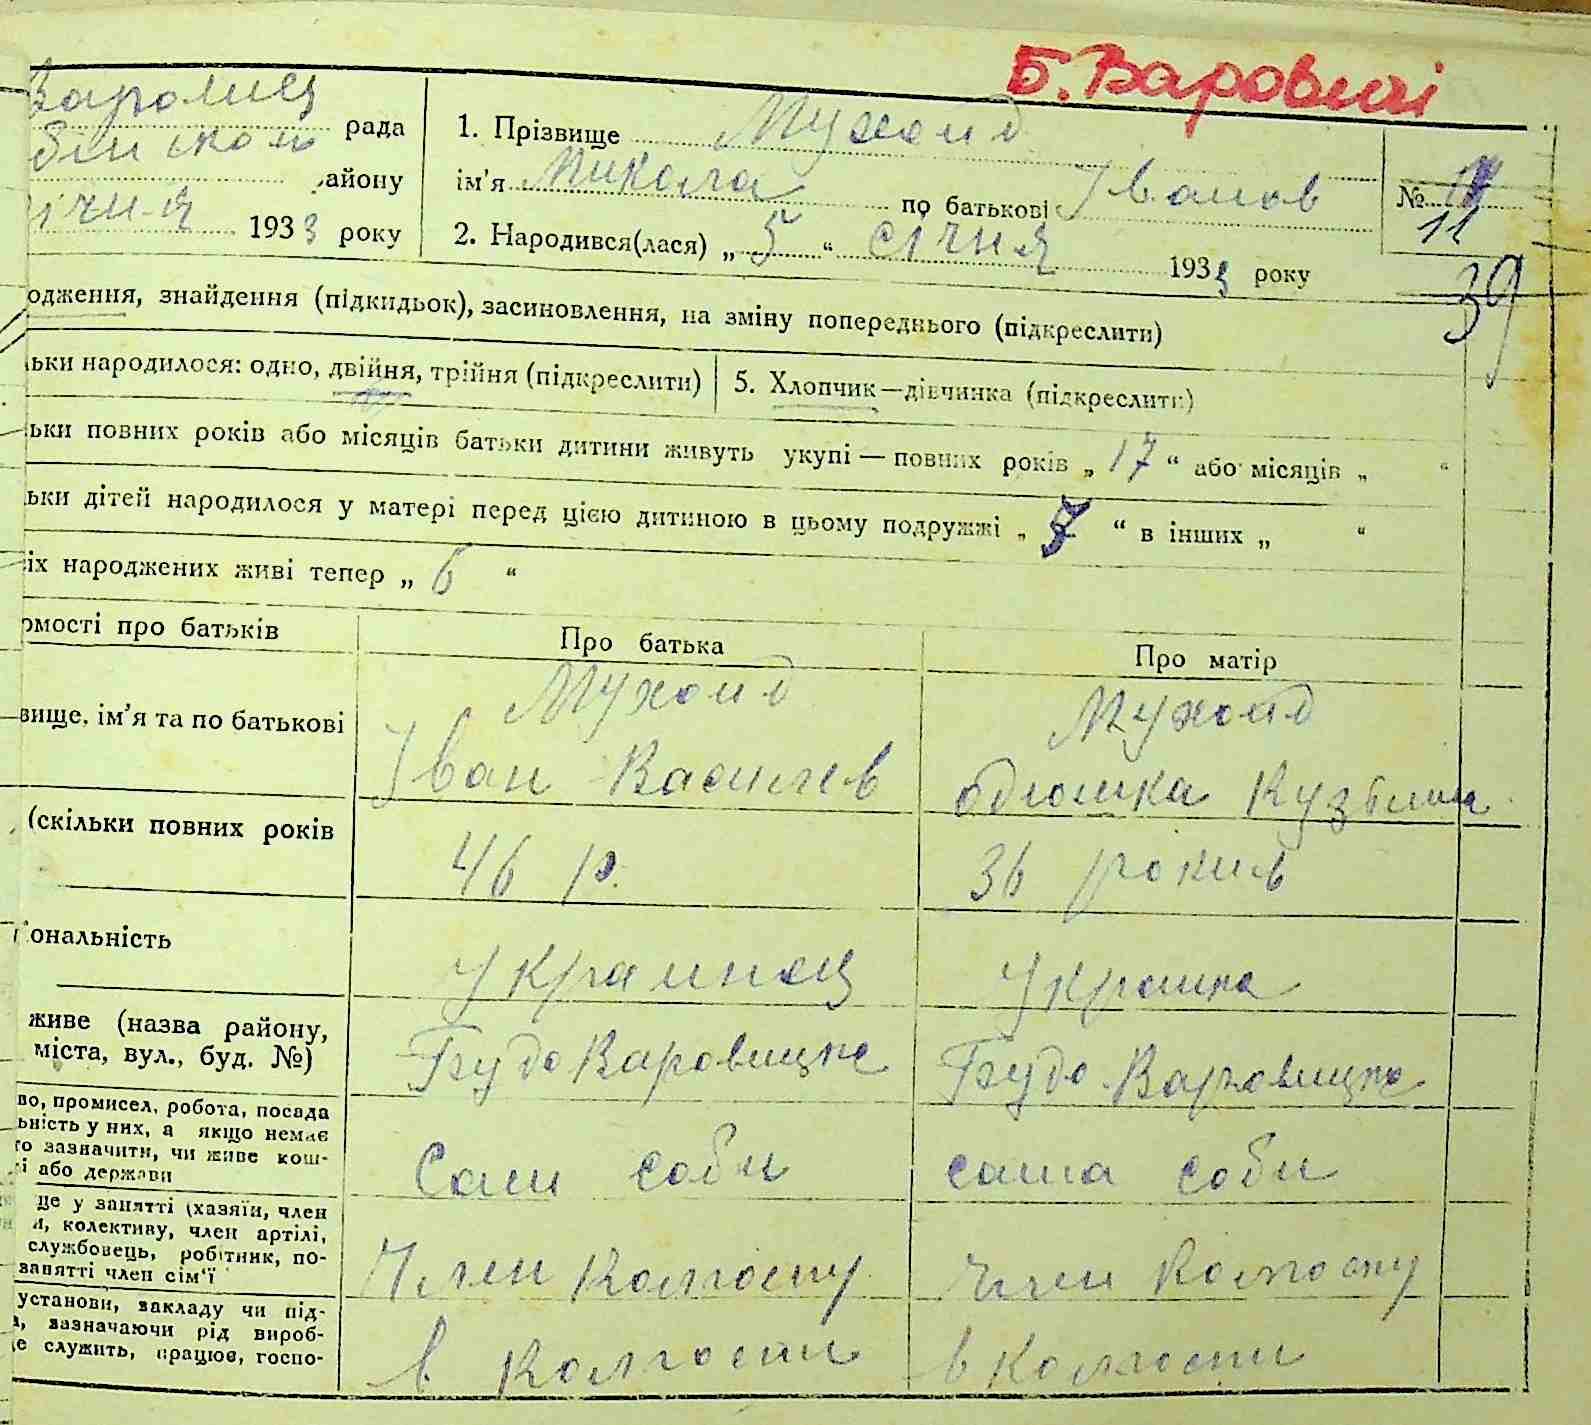 Б. Варовичі
рада
району
січня 1933 року
1. Прізвище Мухоид
ім'я Микола по батькові Іванов
2. Народився(лася) „ 5 “ січня 1933 року
№
11
39
одження, знайдення (підкидьок), засиновлення, на зміну попереднього (підкреслити)
льки народилося: одно, двійня, трійня (підкреслити)
5. Хлопчик—дівчинка (підкреслити)
льки повних років або місяців батьки дитини живуть укупі — повних років „ 17 “ або місяців „ “
льки дітей народилося у матері перед цією дитиною в цьому подружжі „ 7 “ в інших „ “
іх народжених живі тепер „ 6 “
омості про батьків
Про батька
Про матір
вище, ім'я та по батькові
Мухоид
Іван Васильев
Мухоид
Кузьмин
(скільки повних років
46 р.
36 рокив
іональність
Украинец
Украинка
живе (назва району,
міста, вул., буд. №)
Грудо Варовицке
Грудо Варовицке
во, промисел, робота, посада
ьність у них, а якщо немає
го зазначити, чи живе кош-
і або держави
Сам соби
сама соби
ще у занятті (хазяїн, член
и, колективу, член артілі,
службовець, робітник, по-
занятті член сім'ї
Член колгоспу
член колгоспу
установи, закладу чи під-
а, зазначаючи рід вироб-
де служить, працює, госпо-
в колгоспи
в колгоспи